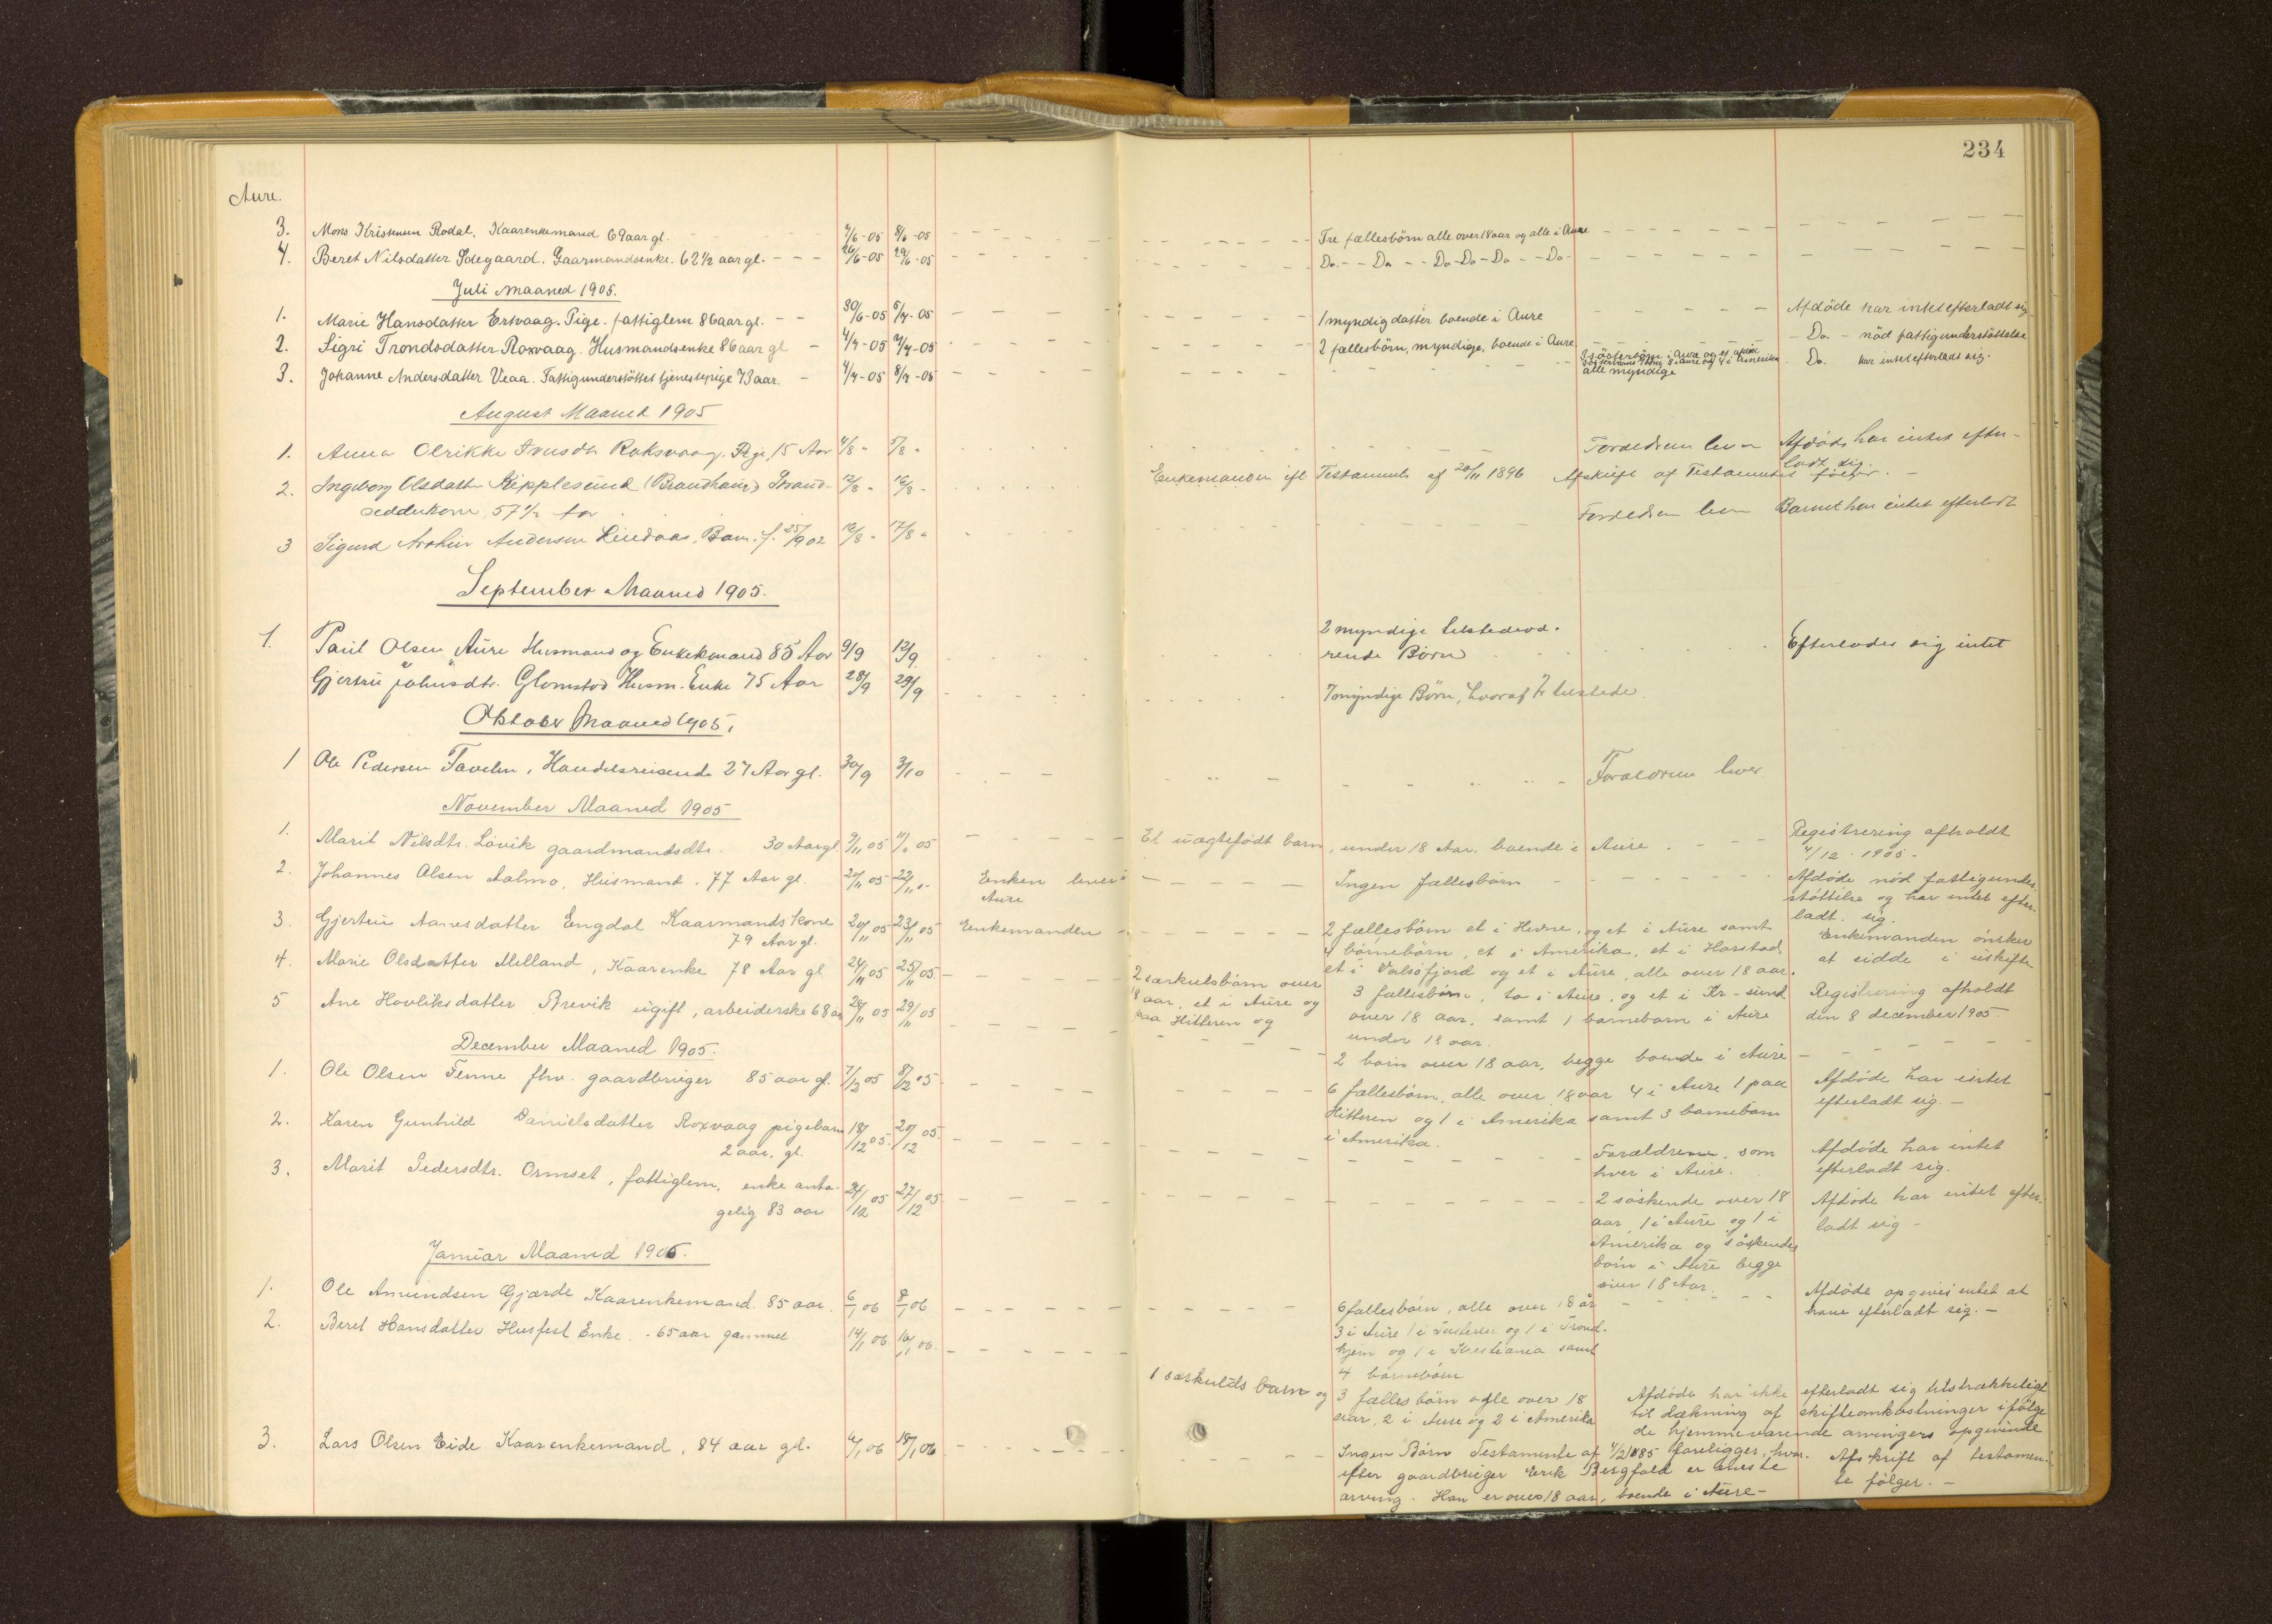 234
Aure.
3. Mons Kristensen Rodal. Kaarenkemand 69 aar gl. 4/6-05 8/6-05 Tre fællesbörn alle over 18 aar og alle i Aure
4. Beret Nilsdatter Ödegaard. Gaarmandsenke. 62 1/2 aar gl. 26/6-05 29/6-05 Do. - - Do - - Do - Do - Do - - Do -
Juli maaned 1905.
1. Marie Hansdatter Ertvaag. Pige. fattiglem 86 aar gl. 30/6-05 5/7-05 1 myndig datter boende i Aure Afdöde har intet efterladt sig
2. Sigri Trondsdatter Roxvaag. Husmandsenke 86 aar gl 4/7-05 7/7-05 2 fællesbörn, myndige, boende i Aure - Do. - nöd fattigunderstöttelse
3. Johanne Andersdatter Veaa. Fattigunderstöttet tjenestepige 73 aar. 4/7-05 8/7-05 alle myndige Do. har intet efterladt sig.
August Maaned 1905
1. Anna Olrikke Iversdtr Roksvaag. Pige, 15 Aar 4/8 " 5/8 " Forældrene lever Afdöde har intet efter-
ladt sig.
2. Ingeborg Olsdatter Kipplesund (Brandhaug) Strand- 12/8 " 16/8 " Enkemanden ifl Testamente af 20/11 1896 Afskrift af Testamentet fölger. -
sedderkone 57 1/2 Aar
3 Sigurd Arthur Andersen Lindaas. Barn. f. 25/9 02 12/8 " 17/8 " Forældrene lever Barnet har intet efterladt
September Maaned 1905.
1. Paul Olsen Aure Husmand og Enkemand 85 Aar 9/9 12/9 2 myndige tilstedevæ-
rende Börn Efterlader sig intet
Gjertru Johnsdtr. Glomstad Husm. Enke 75 Aar 28/9 29/9 7 myndige Börn, hvoraf 2 tilstede.
Oktober Maaned 1905.
1 Ole Pedersen Tavelen, Handelsreisende 27 Aar gl. 30/9 3/10 Forældrene lever
November Maaned 1905
1. Marit Nilsdtr. Lövik gaardmandsdtr. 30 Aar gl 9/11 05 11/11 05 Et uægtefödt barn, under 18 Aar. boende i Aure. Registrering afholdt
4/12 - 1905 -
2. Johannes Olsen Aalmo, Husmand. 77 Aar gl. 20/11 05 22/11 " Enken lever i
Aure Ingen fællesbörn Afdöde nöd fattigunder-
stöttelse og har intet efter-
ladt sig.
3. Gjertru Aanesdatter Engdal Kaarmands kone 20/11 05 23/11 05 Enkemanden
79 Aar gl. 2 fællesbörn et i Hevne, og et i Aure samt
4 börnebörn, et i Amerika, et i Harstad
et i Valsöfjord og et i Aure, alle over 18 aar. Enkemanden önsker
at sidde i uskifte
4. Marie Olsdatter Melland, Kaarenke 78 Aar gl. 24/11 05 25/11 05 2 særkulsbörn over
18 aar, et i Aure og
paa Hitteren og 3 fællesbörn, to i Aure, og et i Kr-sund
over 18 aar, samt 1 barnebarn i Aure
under 18 aar. Registrering afholdt
den 8 december 1905.
5 Ane Hovliksdatter Brevik ugift, arbeiderske 68 aar 26/11 05 29/11 05 2 barn over 18 aar, begge boende i Aure
December Maaned 1905.
1. Ole Olsen Fenne fhv. gaardbruger 85 aar gl. 7/12 05 8/12 05. 6 fællesbörn, alle over 18 aar 4 i Aure 1 paa
Hitteren og 1 i Amerika samt 3 barnebarn
i Amerika. Afdöde har intet
efterladt sig. -
2. Karen Gunhild Danielsdatter Roxvaag pigebarn 18/12 05. 20/12 05.
2 aar. gl. Forældrene, som
lever i Aure. Afdöde har intet
efterladt sig.
3. Marit Pedersdtr. Ormset, fattiglem, enke anta-
gelig 83 aar 24/12 05 27/12 05. 2 söskende over 18
aar, 1 i Aure og 1 i
Amerika og söskende
börn i Aure begge
over 18 Aar. Afdöde har intet efter-
ladt sig -
Januar Maaned 1906.
1. Ole Amundsen Gjærde Kaarenkemand. 85 aar. 6/1 06 8/1 06 6 fællesbörn, alle over 18 år
3 i Aure 1 i Tusteren og 1 i Trond-
hjem og 1 i Kristiania samt
4 barnebörn Afdöde opgives intet at
have efterladt sig. -
2. Beret Hansdatter Husfest Enke. - 65 aar gammel 14/1 06 16/1 06. 1 særkulds barn og 3 fælles börn alle over 18
aar, 2 i Aure og 2 i Amerika Afdöde har ikke efterladt sig tilstrækkeligt
til dækning af skifteomkostninger ifölge
de hjemmeværende arvingers opgivende
3. Lars Olsen Eide Kaarenkemand, 84 aar gl. 18/1 06 Ingen Börn Testamente af 4/2 1885 foreligger, hvor-
efter gaardbruger Erik Bergfald er eneste
arving. Han er over 18 aar, boende i Aure - Afskrift af testamen-
te fölger. -